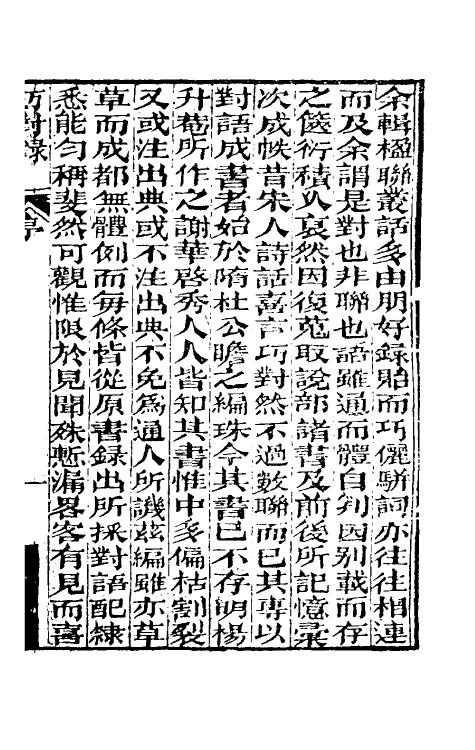 余輯楹聯叢話多由朋好錄貽而巧儷駢詞亦往往相連
而及余謂是對也非聯也語雖通而體自判因別載而存
之篋衍積久裒然因復蒐取說部諸書及前後所記憶彙
次成帙昔宋人詩話喜言巧對然不過數聯而已其專以
對語成書者始於隋杜公瞻之編珠今其書已不存明楊
升菴所作之謝華啓秀人人皆知其書惟中多偏枯割裂
又或注出典或不注出典不免為通人所譏茲編雖亦草
草而成都無體例而每條皆從原書錄出所採對語配隸
悉能勻稱斐然可觀惟限於見聞殊慙漏畧客有見而喜
巧對錄 序 一